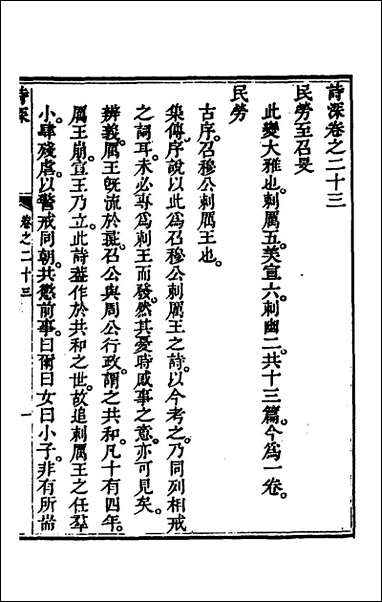 詩深卷之二十三
民勞至召旻
此變大雅也。刺厲五。美宣六。刺幽二。共十三篇。今為一卷。
民勞
古序。召穆公刺厲王也。
集傳。序說以此為召穆公刺厲王之詩。以今考之。乃同列相戒
之詞耳。未必專為刺王而發。然其憂時感事之意。亦可見矣。
辨義。厲王旣流於彘。召公與周公行政。謂之共和。凡十有四年。
厲王崩。宣王乃立。此詩蓋作於共和之世。故追刺厲王之任羣
小。肆殘虐。以警戒同朝。共懲前事。曰爾曰女曰小子。非有所耑
詩深
卷之二十三
一